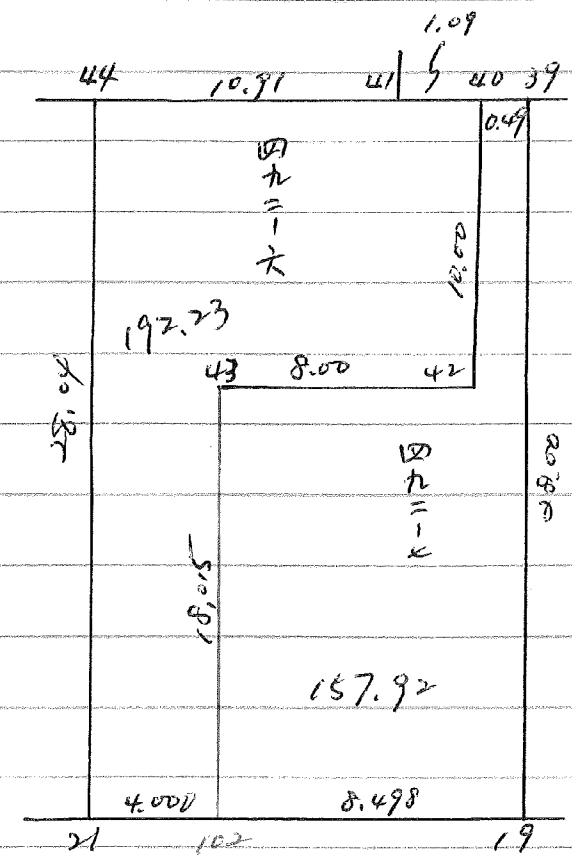 1.09
44 10.91 41 40 39
0.49
四九二一六
10.00
192.23
43 8.00 42
28.04
28.00
四九二一
18.015
157.92
4.000 8.498
21 102 19